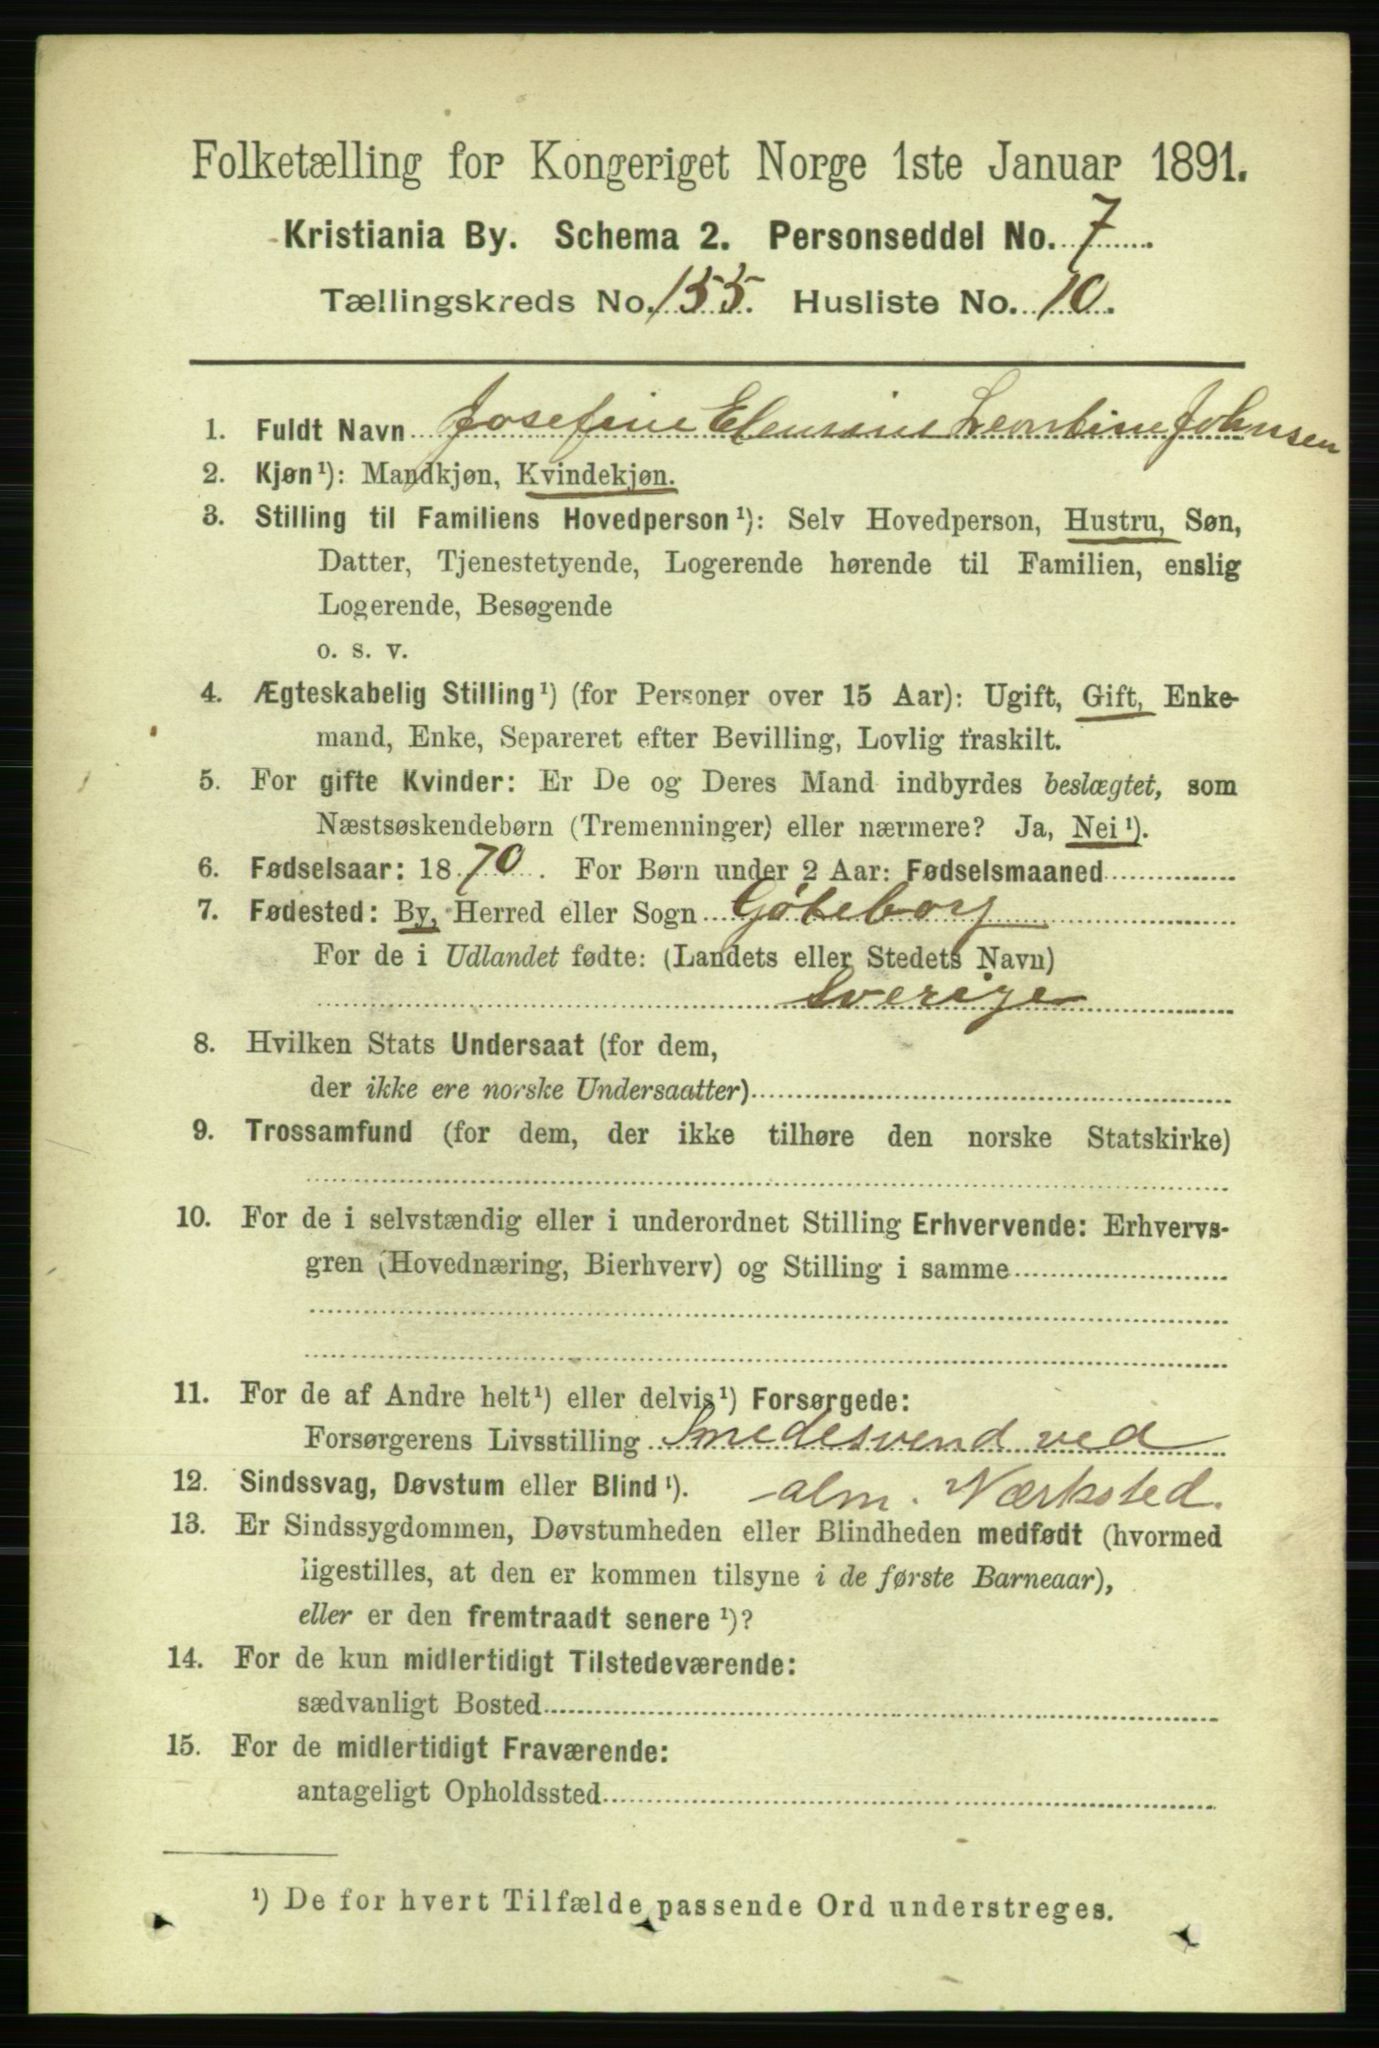 Folketælling for Kongeriget Norge 1ste Januar 1891.
Kristiania By. Schema 2. Personseddel No. 7
Tællingskreds No. 155. Husliste No. 10.
1. Fuldt Navn Josefine Johnsen
2. Kjøn¹): Mandkjøn, Kvindekjøn.
3. Stilling til Familiens Hovedperson¹): Selv Hovedperson, Hustru, Søn,
Datter, Tjenestetyende, Logerende hørende til Familien, enslig
Logerende, Besøgende
o. s. v.
4. Ægteskabelig Stilling¹) (for Personer over 15 Aar): Ugift, Gift, Enke-
mand, Enke, Separeret efter Bevilling, Lovlig fraskilt.
5. For gifte Kvinder: Er De og Deres Mand indbyrdes beslægtet, som
Næstsøskendebørn (Tremenninger) eller nærmere? Ja, Nei¹).
6. Fødselsaar: 1870. For Børn under 2 Aar: Fødselsmaaned
7. Fødested: By, Herred eller Sogn Göteborg
For de i Udlandet fødte: (Landets eller Stedets Navn)
Sverige
8. Hvilken Stats Undersaat (for dem,
der ikke ere norske Undersaatter)
9. Trossamfund (for dem, der ikke tilhøre den norske Statskirke)
10. For de i selvstændig eller i underordnet Stilling Erhvervende: Erhvervs-
gren (Hovednæring, Bierhverv) og Stilling i samme
11. For de af Andre helt¹) eller delvis¹) Forsørgede:
Forsørgerens Livsstilling Smedesvend ved
12. Sindssvag, Døvstum eller Blind¹). alm. Værksted.
13. Er Sindssygdommen, Døvstumheden eller Blindheden medfødt (hvormed
ligestilles, at den er kommen tilsyne i de første Barneaar),
eller er den fremtraadt senere¹)?
14. For de kun midlertidigt Tilstedeværende:
sædvanligt Bosted
15. For de midlertidigt Fraværende:
antageligt Opholdssted
¹) De for hvert Tilfælde passende Ord understreges.